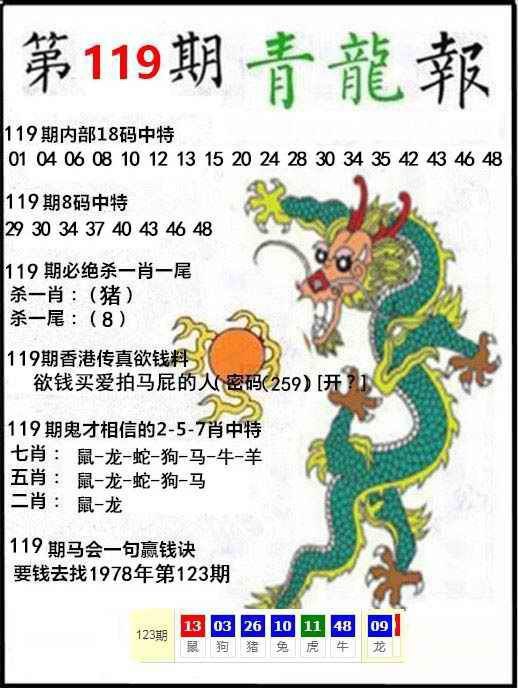 第119期青龍報
119期内部18码中特
01 04 06 08 10 12 13 15 20 24 28 30 34 35 42 43 46 48
119期8码中特
29 30 34 37 40 43 46 48
119期必绝杀一肖一尾
杀一肖：（猪）
杀一尾：（8）
119期香港传真欲钱料
欲钱买爱拍马屁的人(密码(259)[开？]
119期鬼才相信的2-5-7肖中特
七肖： 鼠-龙-蛇-狗-马-牛-羊
五肖： 鼠-龙-蛇-狗-马
二肖： 鼠-龙
119期马会一句赢钱诀
要钱去找1978年第123期
123期 13 03 26 10 11 48 09
鼠 狗 猪 兔 虎 牛 龙